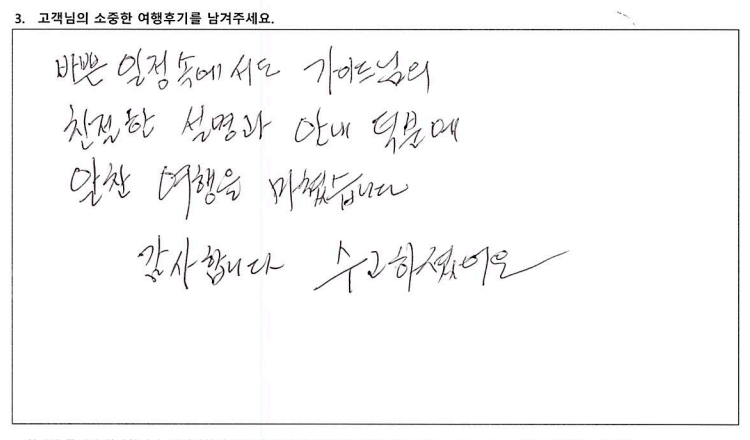 3. 고객님의 소중한 여행후기를 남겨주세요.
바쁜 일정속에서도 가이드님의
친절한 설명과 안내 덕분에
알찬 여행을 마쳤습니다
감사합니다 수고하셨어요